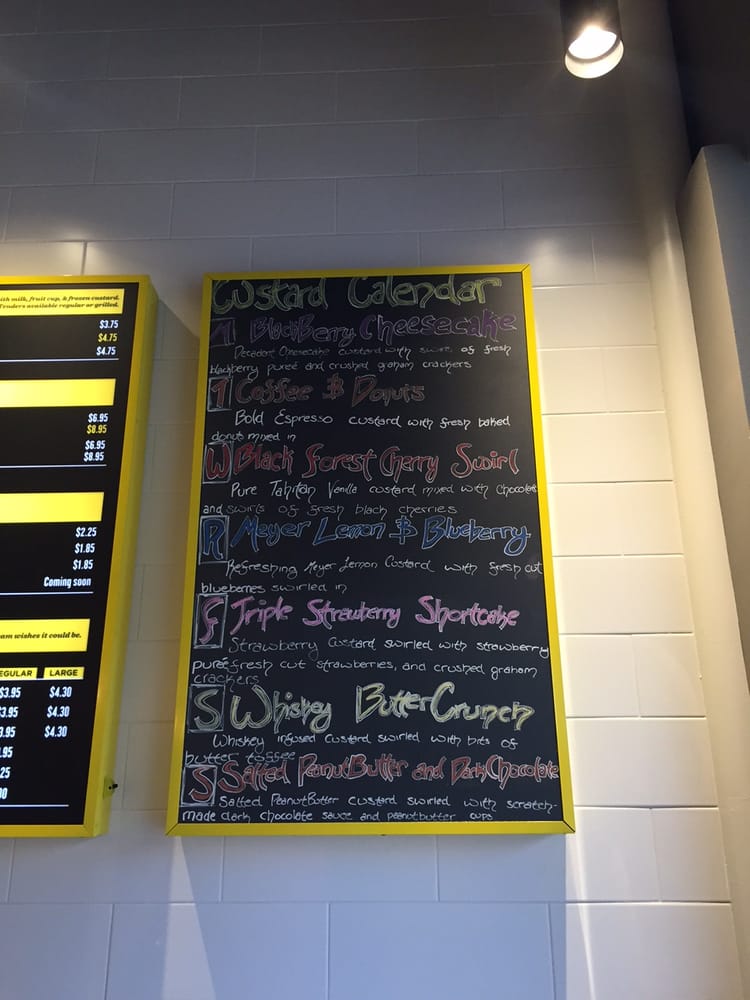 ith milk, fruit cup, & frozen custard.
Tenders available regular or grilled.
$3.75
$4.75
$4.75
$6.95
$8.95
$6.95
$8.95
$2.25
$1.85
$1.85
Coming soon
am wishes it could be.
EGULAR LARGE
$3.95 $4.30
$3.95 $4.30
3.95 $4.30
.95
25
Custard Calendar
M BlackBerry Cheesecake
Decadent Cheesecake custard with swirls of fresh
blackberry pureé and crushed graham crackers
T Coffee & Donuts
Bold Espresso custard with fresh baked
donuts mixed in
W Black Forest Cherry Swirl
Pure Tahitian Vanilla custard mixed with chocolate
and swirls of fresh black cherries
R Meyer Lemon & Blueberry
Refreshing Meyer Lemon Custard with fresh cut
blueberries swirled in
F Triple Strawberry Shortcake
Strawberry Custard swirled with strawberry
pureé fresh cut strawberries, and crushed graham
crackers
S Whiskey ButterCrunch
Whiskey infused Custard swirled with bits of
butter toffee
S Salted PeanutButter and DarkChocolate
Salted PeanutButter custard swirled with scratch-
made dark chocolate sauce and peanutbutter cups